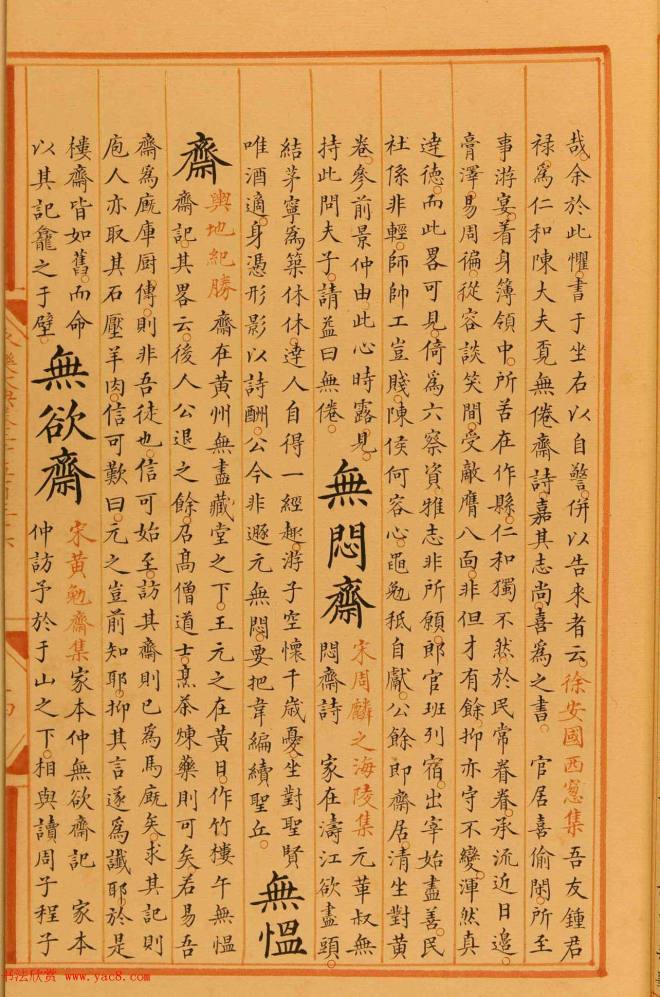 哉。余於此懼。書于坐右以自警。併以告来者云。徐安國西窻集 吾友鍾君
禄。為仁和陳大夫覔無倦齋詩。嘉其志尚。喜為之書。 官居喜偷閑。所至
事游宴。着身簿領中。所苦在作縣。仁和獨不然。於民常眷眷。承流近日邉。
膏澤易周徧。從容談笑間。受敵膺八面。非但才有餘。抑亦守不變。渾然真
逹德。而此畧可見。倚為六察資。雅志非所願。郎官班列宿。出宰始盡善。民
社係非輕。師帥工豈賤。陳侯何容心。黽勉秖自獻。公餘即齋居。清坐對黄
卷。參前景仲由。此心時露見。
持此問夫子。請益曰無倦。
無悶齋
宋周麟之海陵集 元華叔無
悶齋詩 家在濤江欲盡頭。
結茅寧為築休休。逹人自得一經趣。游子空懷千歳憂。坐對聖賢
唯酒適。身憑形影以詩酬。公今非遯元無悶。要把韋編續聖丘。
無慍
齋
輿地紀勝 齋在黄州無盡藏堂之下。王元之在黄日。作竹樓午無慍
齋記。其畧云。後人公退之餘。召髙僧道士。烹茶煉藥則可矣。若易吾
齋為廐庫厨傳。則非吾徒也。信可始至。訪其齋則已為馬廐矣。求其記則
庖人亦取其石壓羊肉。信可歎曰。元之豈前知耶。抑其言遂為讖耶。於是
樓齋皆如舊。而命
以其記龕之于壁。
無欲齋
宋黄勉齋集 家本仲無欲齋記 家本
仲訪予於于山之下。相與讀周子程子
书法欣赏 www.yac8.com